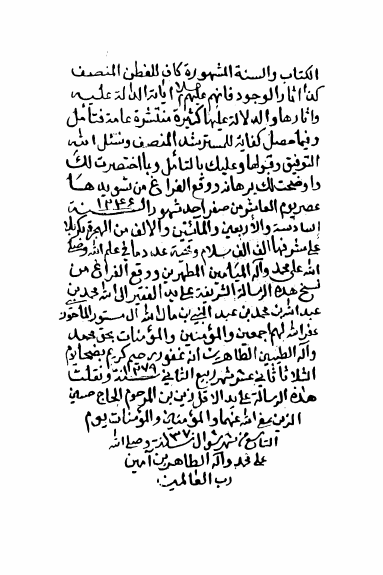 الكتاب والسنة المشهورة كان للفطن المنصف
كذا اثار الوجود فانهم عليهم السلام اياته الدالة عليه
واثارها والدلالة عليها كثيرة منتشرة عامة فتأمل
وفيما حصل كفاية للمسترشد المنصف ونسئل الله
التوفيق وقولها وعليك بالتأمل وبا اختصرت لك
واوضحت لك برهانه ووقع الفراغ من تسويد ها
عصر يوم العاشر من صفر احد شهور السنة ١٢٤٦
السادسة والأربعين والمائتين والالف من الهجرة
على مشرفها الف الف سلام وتحية عدد ما في علم الله وصلى
الله على محمد وآله الميامين المطهرين ووقع الفراغ من
نسخ هذه الرسالة الشريفة على يد الفقير الى الله محمد بن
عبد الله بن محمد بن عبد النبي بن مال الله آل
غفر الله لهم اجمعين والمؤمنين والمؤمنات بحق محمد
وآله الطيبين الطاهرين انه غفور رحيم كريم بضحا يوم
الثلاثا ثاني عشر شهر ربيع الثاني سنة ١٢٧٩ ونقلت
هذه الرسالة على يد الاقل زين بن المرحوم الحاج حسين
الزين عفى الله عنهما والمؤمنين والمؤمنات يوم
التاسع من شهر شوال سنة ٣٧ وصلى الله
على محمد وآله الطاهرين آمين
رب العالمين